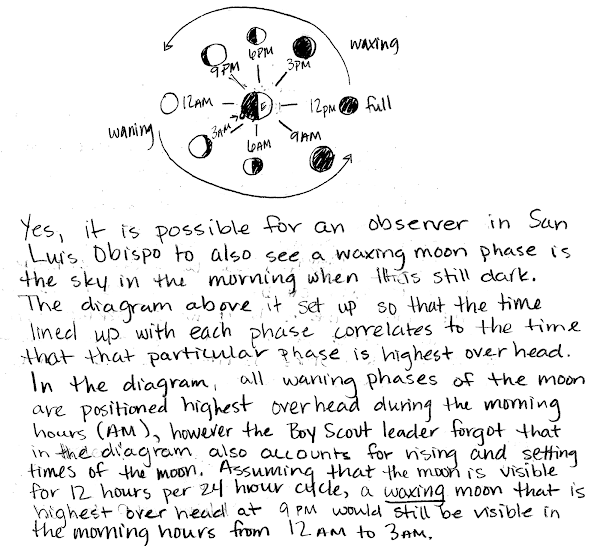 6PM
waxing
9PM
3PM
12AM
E
12PM
full
waning
3AM
6AM
9AM
Yes, it is possible for an observer in San
Luis Obispo to also see a waxing moon phase is
the sky in the morning when it is still dark.
The diagram above it set up so that the time
lined up with each phase correlates to the time
that that particular phase is highest over head.
In the diagram, all waning phases of the moon
are positioned highest overhead during the morning
hours (AM), however the Boy Scout leader forgot that
in the diagram also accounts for rising and setting
times of the moon. Assuming that the moon is visible
for 12 hours per 24 hour cycle, a waxing moon that is
highest over head at 9 PM would still be visible in
the morning hours from 12 AM to 3 AM.